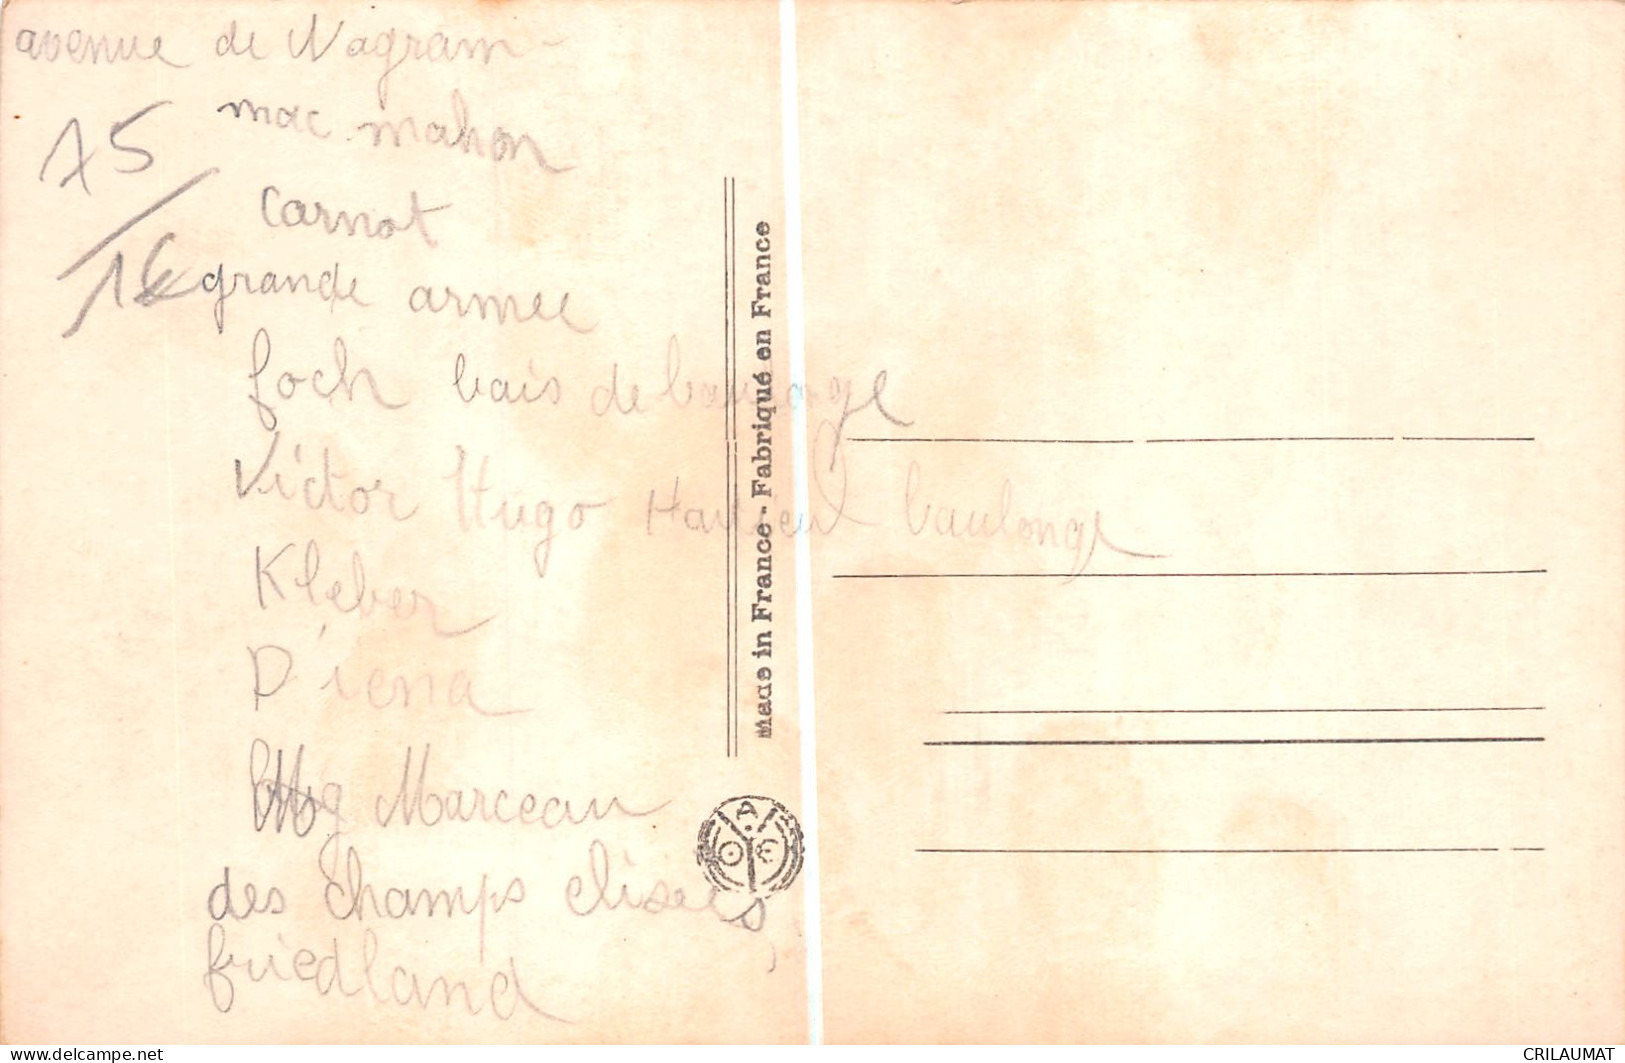 avenue de Wagram -
mac mahon
75
/16
carnot
grande armee
foch bais de baulonge
Victor Hugo baulonge
Kleber
D'iena
Marceau
des champs elisees
friedland
Made in France - Fabriqué en France
www.delcampe.net
CRILAUMAT